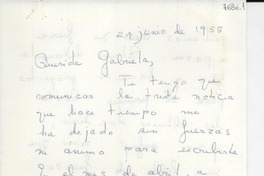 76861
24 junio de 1955
Querida Gabriela,
Te tengo que
comunicar la triste noticia
que hace tiempo me
ha dejado sin fuerzas
ni animo para escribirte
E el mes de abril, a